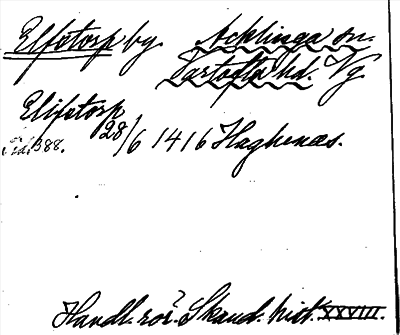 Elfstorp by. Acklinga sn.
Vartofta hd. Vg.
Elifstorp
28/6 1416 Haghenæs.
i. 388.
Handl. rör. Skand. hist. XXVIII.